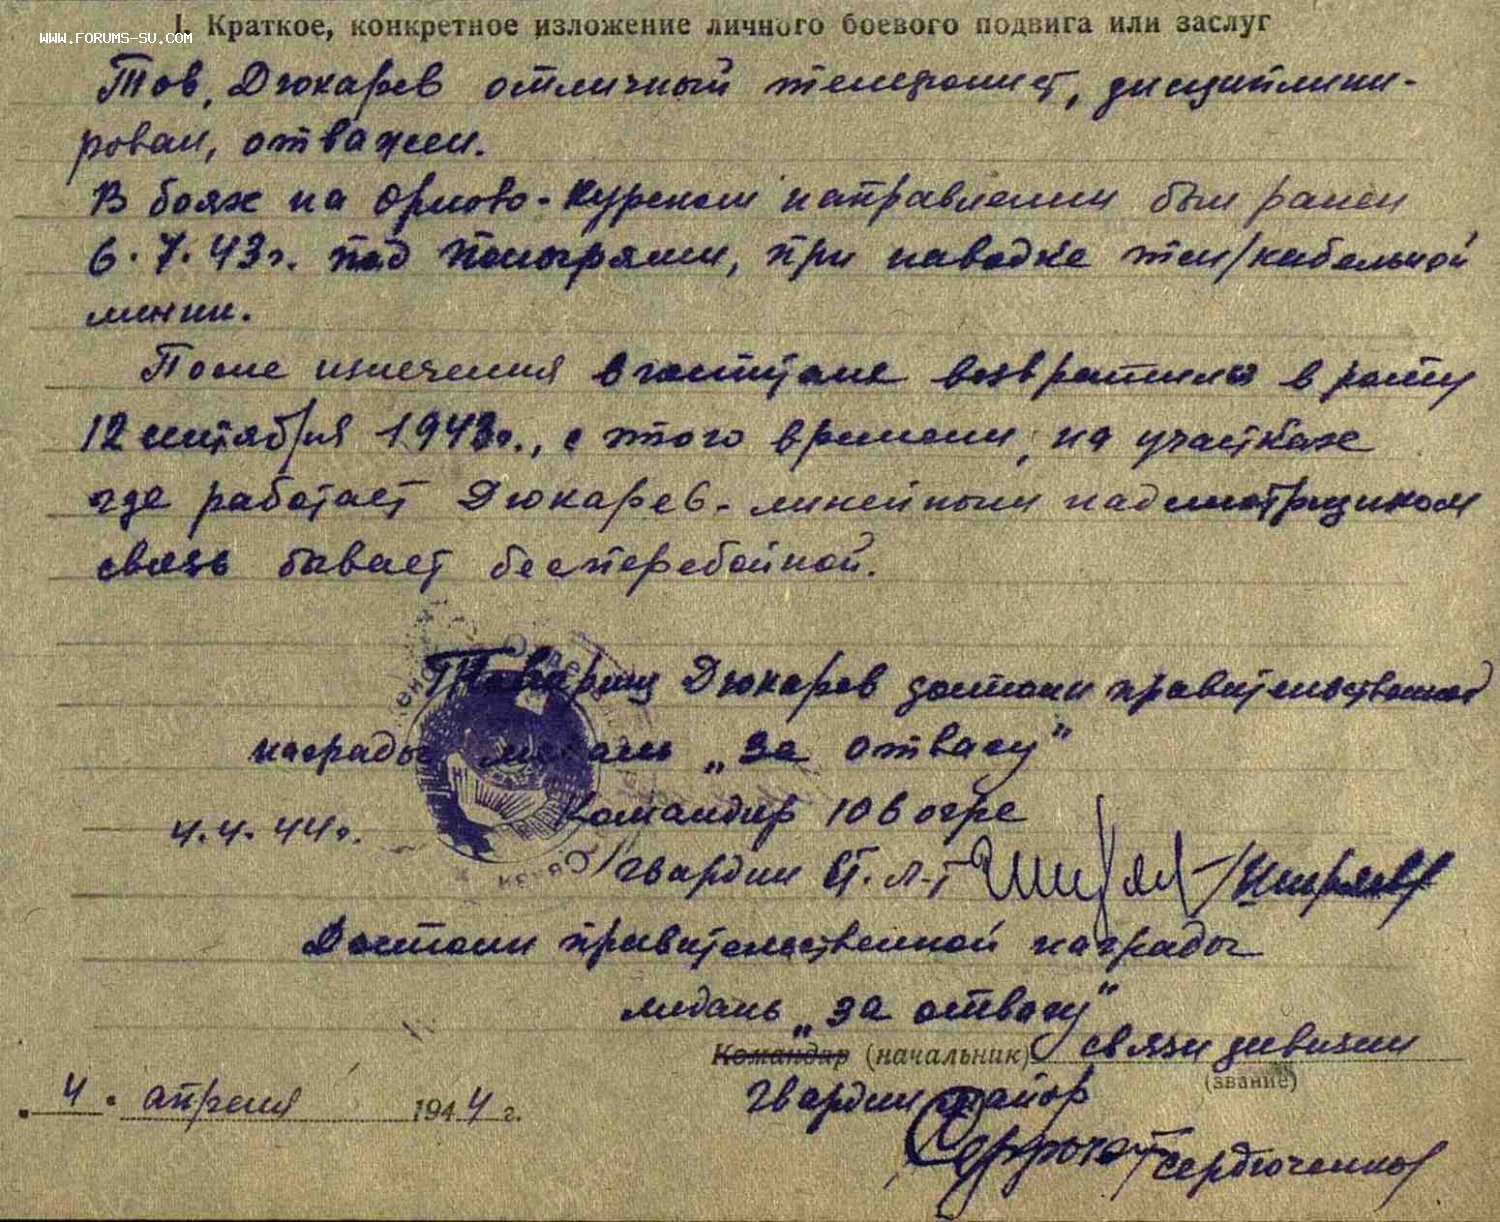 I. Краткое, конкретное изложение личного боевого подвига или заслуг
WWW.FORUMS-SU.COM
Тов. Дюкарев отличный телефонист, дисциплини-
рован, отважен.
В боях на Орлово-Курском направлении был ранен
6.7.43г. под Понырями, при наводке тел/кабельной
линии.
После излечения в госпитале возвратился в роту
12 сентября 1943г., с этого времени, на участках
где работает Дюкарев - линейным надсмотрщиком
связь бывает бесперебойной.
Товарищ Дюкарев достоин правительственной
награды медаль „За отвагу"
Командир 106 огрс
4.4.44г.
гвардии ст. л-т /Ширяев/
Достоин правительственной награды
медаль „За отвагу"
Командир (начальник) связи дивизии
(звание)
гвардии майор
4 апреля 1944 г.
Сердюченко